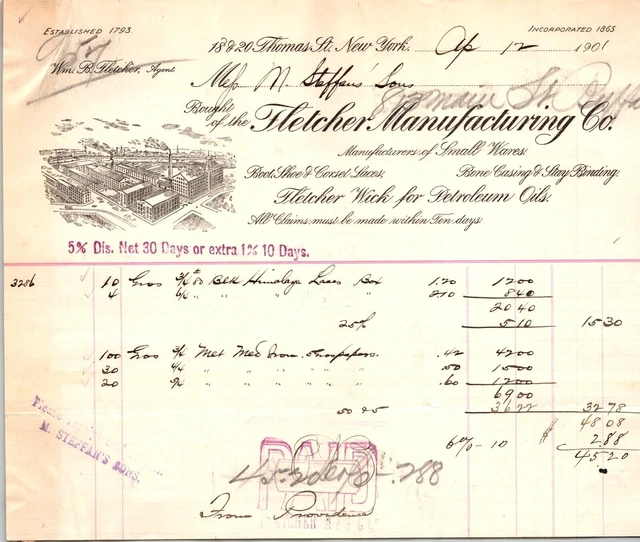 ESTABLISHED 1793.
INCORPORATED 1865
18 & 20 Thomas St. New York. Ap 12 1901
Wm. B. Fletcher, Agent.
Mess M. Steffans' Sons
Main St.
Bought of the Fletcher Manufacturing Co.
Manufacturers of Small Wares.
Boot, Shoe & Corset Laces, Bone Casing & Stay Binding.
Fletcher Wick for Petroleum Oils.
All Claims must be made within Ten days.
5% Dis. Net 30 Days or extra 1% 10 Days.
3286 10 Gros 3/4 Blk Himalaya Laces Box 1.20 12 00
4 6/4 " " " " 2 10 8 40
20 40
25% 5 10 15 30
100 Gros 3/4 Met Med .42 42 00
30 4/4 " " " " .50 15 00
20 " " " " .60 12 00
69 00
50 & 5 36 22 32 78
48 08
6% - 10 $ 2 88
45 20
Please
M. STEFFAN'S SONS.
PAID
45 20 288
From Providence